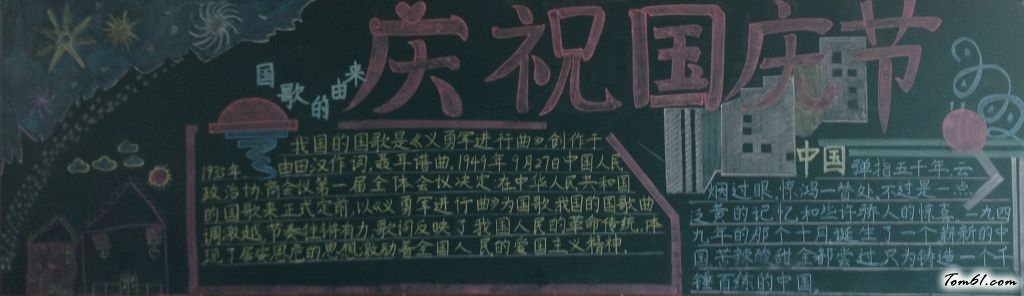 庆祝国庆节
国歌的由来
我国的国歌是《义勇军进行曲》,创作于
1935年 由田汉作词,聂耳谱曲,1949年9月27日中国人民
政治协商会议第一届全体会议决定:在中华人民共和国
的国歌未正式定前,以《义勇军进行曲》为国歌.我国的国歌曲
调激越,节奏铿锵有力,歌词反映了我国人民的革命传统,体
现了居安思危的思想,激励着全国人民的爱国主义精神.
中国
弹指五千年,云
烟过眼,惊鸿一瞥处,不过是一点
泛黄的记忆和些许骄人的惊喜.一九四
九年的那个十月诞生了一个崭新的中
国.苦辣酸甜全都尝过只为铸造一个千
锤百炼的中国.
Tom61.com